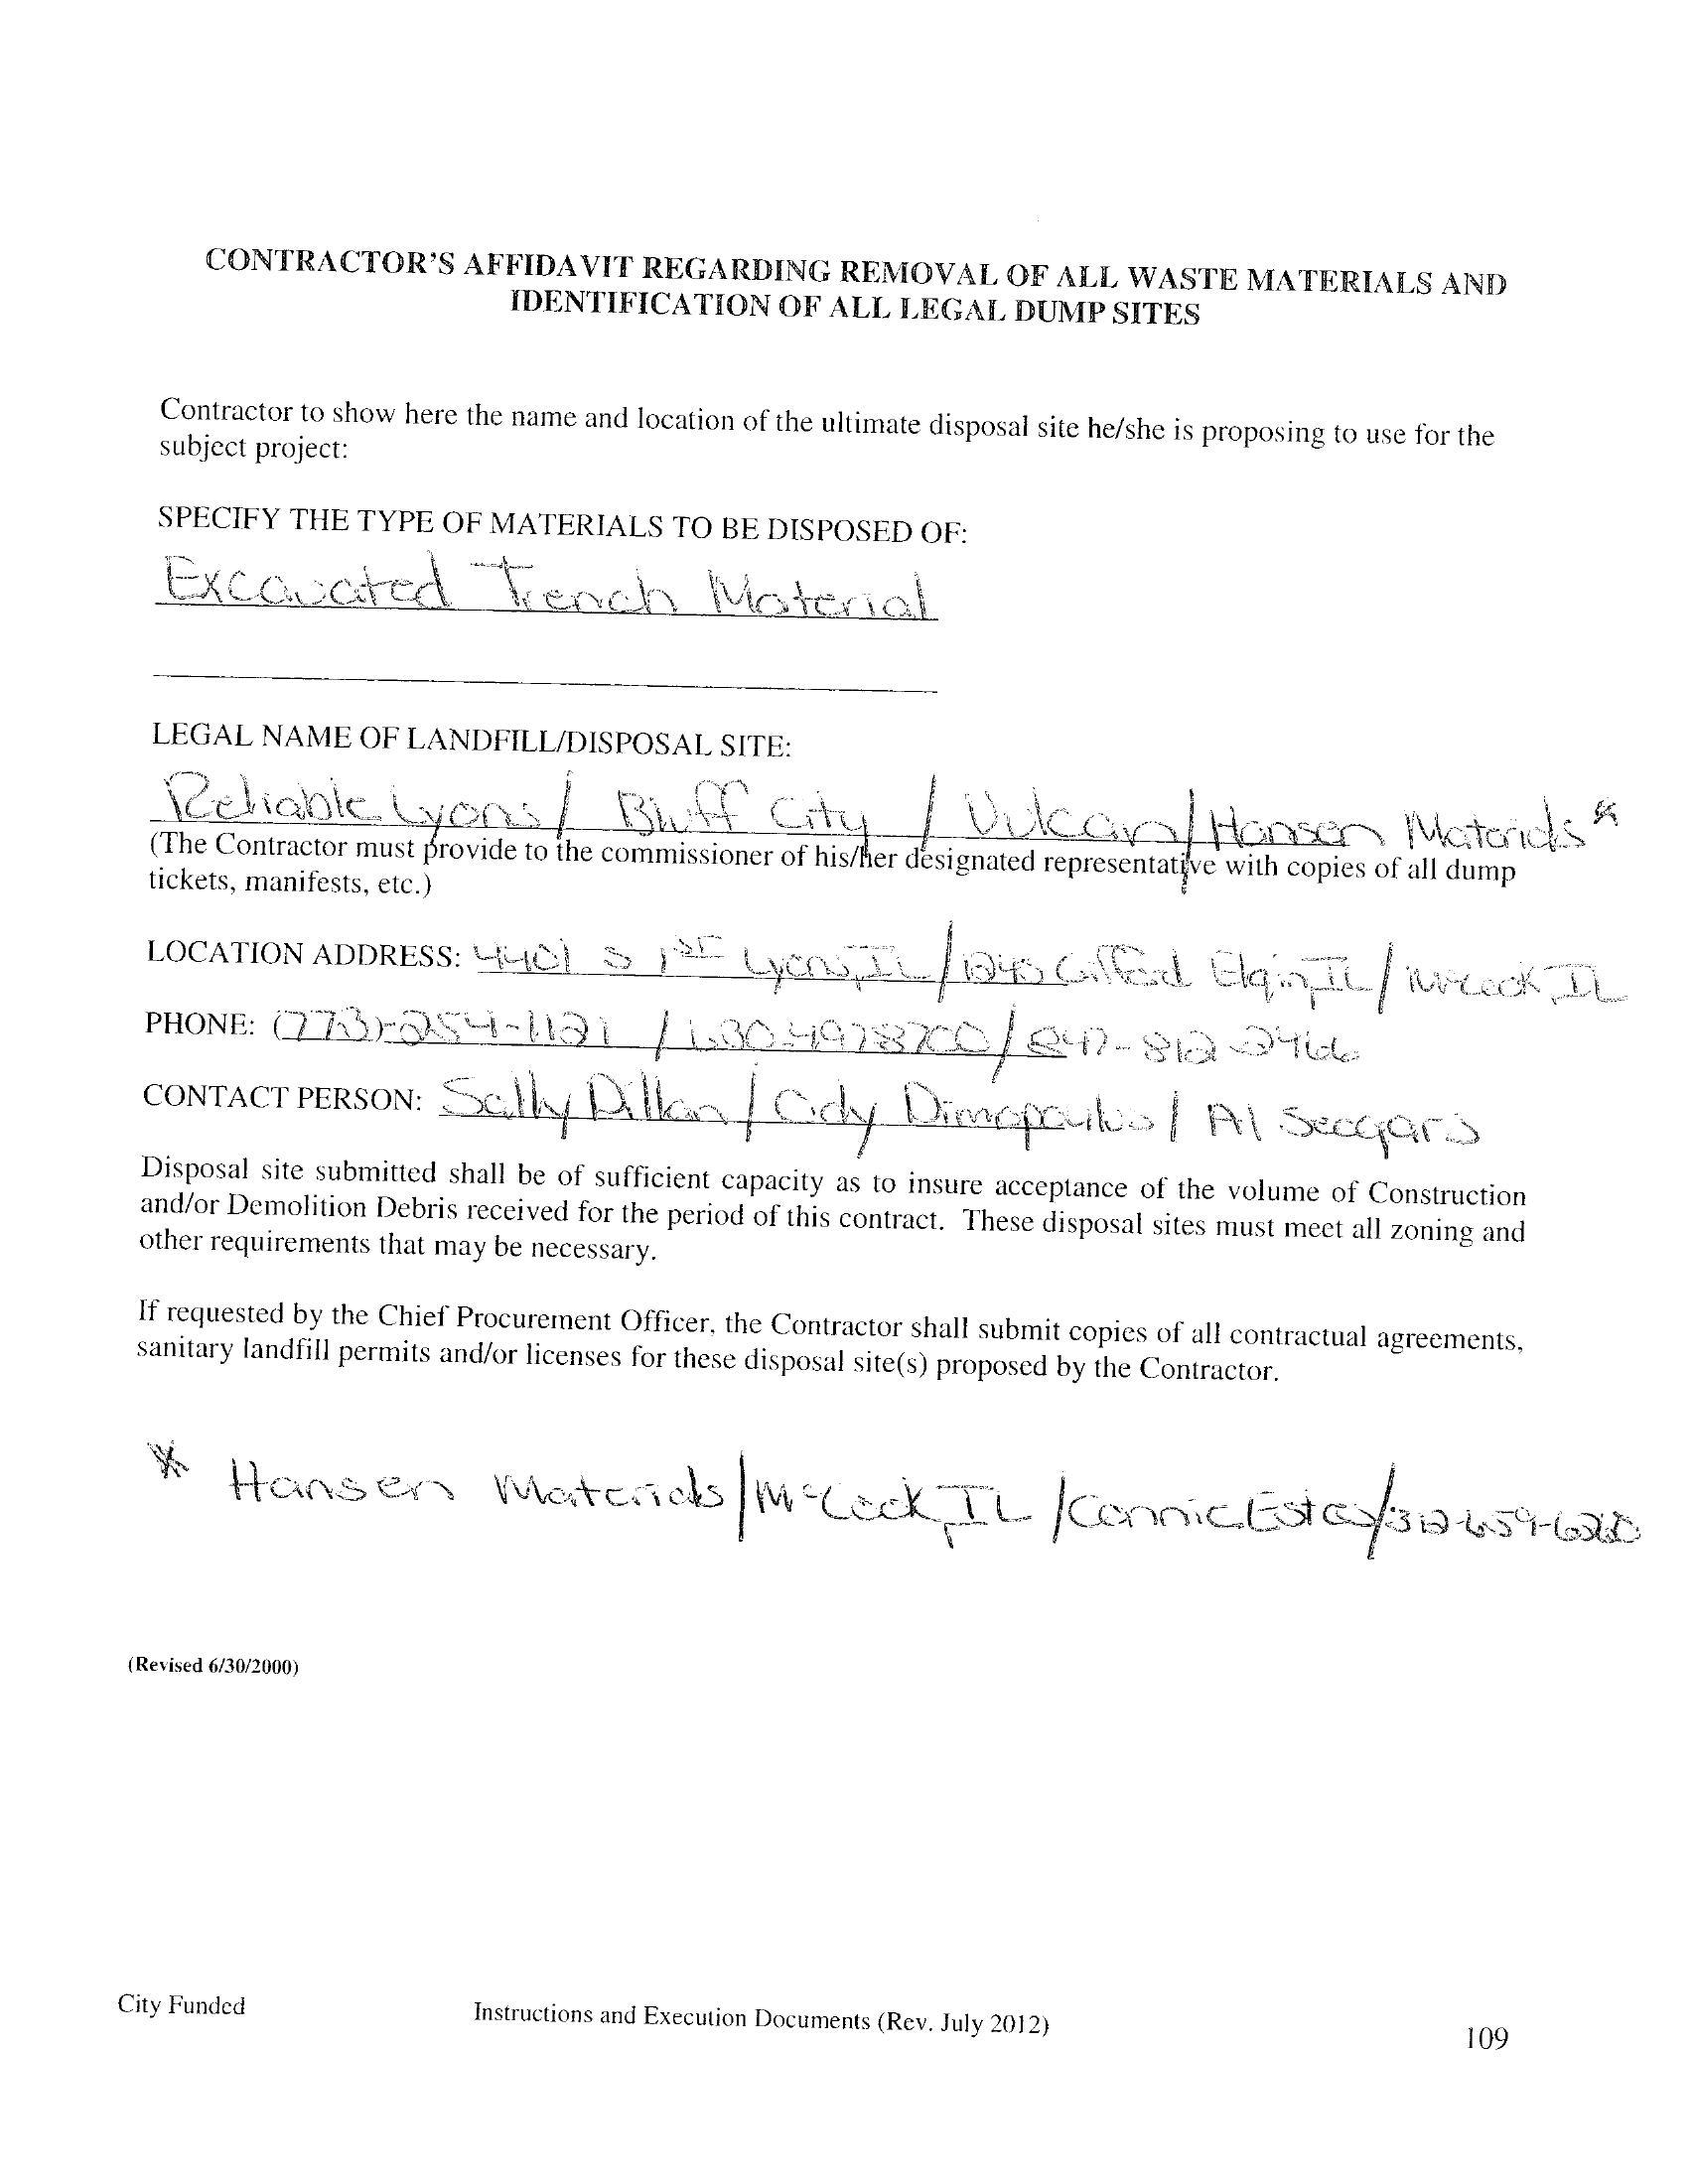 CONTRACTOR'S AFFIDAVIT REGARDING REMOVAL OF ALL WASTE MATERIALS AND
IDENTIFICATION OF ALL LEGAL DUMP SITES
Contractor to show here the name and location of the ultimate disposal site he/she is proposing to use for the
subject project:
SPECIFY THE TYPE OF MATERIALS TO BE DISPOSED OF:
Excavated Trench Material
LEGAL NAME OF LANDFILL/DISPOSAL SITE:
Reliable Lyons / Bluff City / Vulcan / Hansen Materials *
(The Contractor must provide to the commissioner of his/her designated representative with copies of all dump
tickets, manifests, etc.)
LOCATION ADDRESS: 4401 S 1st Lyons, IL / Gifford Elgin, IL / McCook, IL
PHONE: (773)-254-1121 / 630 4978700 / 847-812-2466
CONTACT PERSON: Sally Dillon / Cidy Dimopoulus / Al Seegars
Disposal site submitted shall be of sufficient capacity as to insure acceptance of the volume of Construction
and/or Demolition Debris received for the period of this contract. These disposal sites must meet all zoning and
other requirements that may be necessary.
If requested by the Chief Procurement Officer, the Contractor shall submit copies of all contractual agreements,
sanitary landfill permits and/or licenses for these disposal site(s) proposed by the Contractor.
* Hansen Materials / McCook, IL / Connie Estes / 312-659-6260
(Revised 6/30/2000)
City Funded Instructions and Execution Documents (Rev. July 2012) 109